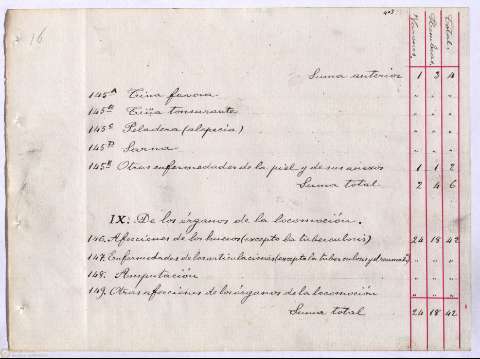 16
403
Varones, Hembras, Total.
Suma anterior 1 3 4
145A Tiña favosa " " "
145B Tiña tonsurante " " "
145C Peladera (alopecia) " " "
145D Sarna " " "
145E Otras enfermedades de la piel y de sus anexos 1 1 2
Suma total 2 4 6
IX. De los órganos de la locomoción.
146. Afecciones de los huesos (excepto la tuberculosis) 24 18 42
147. Enfermedades de las articulaciones (excepto la tuberculosis y el reumat.) " " "
148. Amputación " " "
149. Otras afecciones de los órganos de la locomoción " " "
Suma total 24 18 42